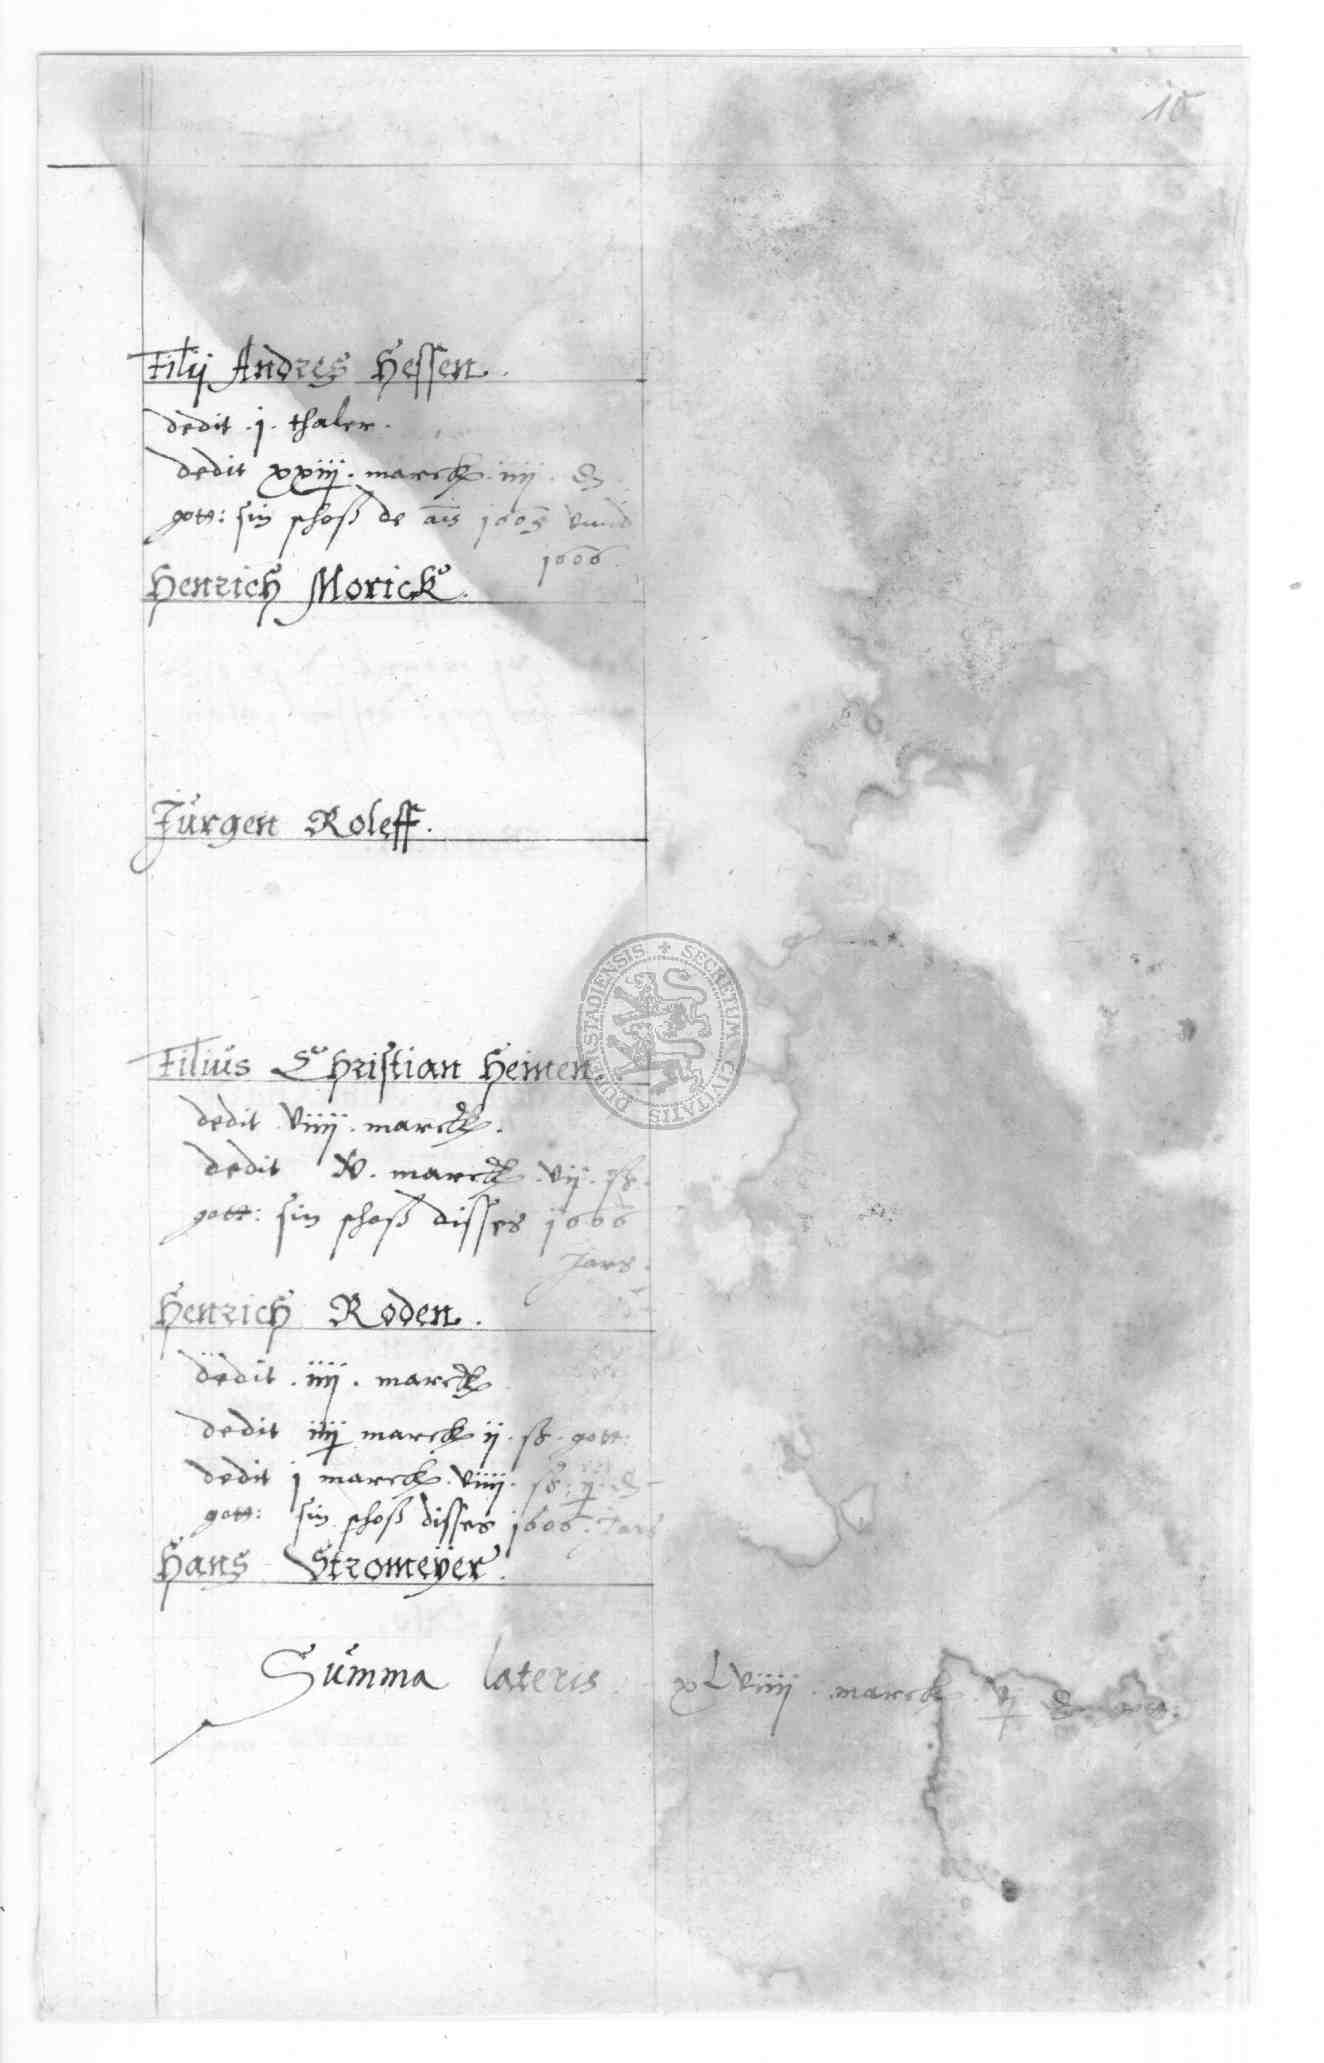 10
Filij Andres Hessen.
dedit .j. thaler.
dedit xxiiij. marck. iiij. d
gott: sin schoß de anis 1605 vnnd
1606.
Henrich Morick.
Jürgen Roleff.
Filius Christian Heinen.
dedit viiij. marck.
dedit v. marck. vij. ß.
gott: sin schoß disses 1606
Jars.
Henrich Roden.
dedit . iiij . marck
dedit iiij marck ij. ß. gott:
dedit j marck. viiij. ß.
gott: sin schoß disses 1606. Jars
Hans Stromeyer.
Summa lateris. xLviiij. marck.
SECRETUM CIVITATIS DUDERSTADIENSIS